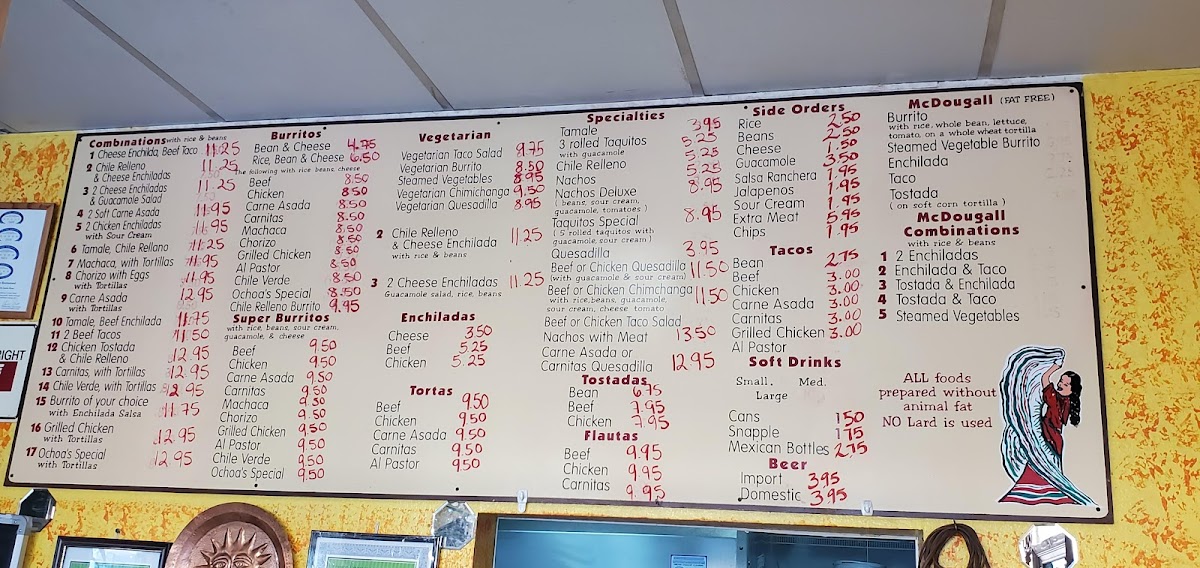 Combinations with rice & beans
1 Cheese Enchilda, Beef Taco 11.25
2 Chile Relleno 11.25
& Cheese Enchiladas
3 2 Cheese Enchiladas 11.25
& Guacamole Salad
4 2 Soft Carne Asada 11.95
5 2 Chicken Enchiladas 11.95
with Sour Cream
6 Tamale, Chile Rellano 11.25
7 Machaca, with Tortillas 11.95
8 Chorizo with Eggs 11.95
with Tortillas
9 Carne Asada 12.95
with Tortillas
10 Tamale, Beef Enchilada 11.75
11 2 Beef Tacos 11.50
12 Chicken Tostada
& Chile Relleno 12.95
13 Carnitas, with Tortillas 12.95
14 Chile Verde, with Tortillas 12.95
15 Burrito of your choice
with Enchilada Salsa 11.75
16 Grilled Chicken
with Tortillas 12.95
17 Ochoa's Special
with Tortillas 12.95
Burritos
Bean & Cheese 4.75
Rice, Bean & Cheese 6.50
The following with rice beans, cheese
Beef 8.50
Chicken 8.50
Carne Asada 8.50
Carnitas 8.50
Machaca 8.50
Chorizo 8.50
Grilled Chicken 8.50
Al Pastor 8.50
Chile Verde 8.50
Ochoa's Special 8.50
Chile Relleno Burrito 9.95
Super Burritos
with rice, beans, sour cream,
guacamole, & cheese
Beef 9.50
Chicken 9.50
Carne Asada 9.50
Carnitas 9.50
Machaca 9.50
Chorizo 9.50
Grilled Chicken 9.50
Al Pastor 9.50
Chile Verde 9.50
Ochoa's Special 9.50
Vegetarian
Vegetarian Taco Salad 9.75
Vegetarian Burrito 8.50
Steamed Vegetables 8.95
Vegetarian Chimichanga 9.50
Vegetarian Quesadilla 8.95
2 Chile Relleno
& Cheese Enchilada 11.25
with rice & beans
3 2 Cheese Enchiladas 11.25
Guacamole salad, rice, beans
Enchiladas
Cheese 3.50
Beef 5.25
Chicken 5.25
Tortas
Beef 9.50
Chicken 9.50
Carne Asada 9.50
Carnitas 9.50
Al Pastor 9.50
Specialties
Tamale 3.95
3 rolled Taquitos 5.25
with guacamole 5.25
Chile Relleno 5.25
Nachos 8.95
Nachos Deluxe
( beans, sour cream,
guacamole, tomatoes )
Taquitos Special 8.95
( 5 rolled taquitos with
guacamole, sour cream )
Quesadilla 3.95
Beef or Chicken Quesadilla 11.50
(with guacamole & sour cream)
Beef or Chicken Chimchanga 11.50
with rice, beans, guacamole,
sour cream, cheese tomato
Beef or Chicken Taco Salad
Nachos with Meat 13.50
Carne Asada or
Carnitas Quesadilla 12.95
Tostadas
Bean 6.75
Beef 7.95
Chicken 7.95
Flautas
Beef 9.95
Chicken 9.95
Carnitas 9.95
Side Orders
Rice 2.50
Beans 2.50
Cheese 1.50
Guacamole 3.50
Salsa Ranchera 1.95
Jalapenos 1.95
Sour Cream 1.95
Extra Meat 5.95
Chips 1.95
Tacos
Bean 2.75
Beef 3.00
Chicken 3.00
Carne Asada 3.00
Carnitas 3.00
Grilled Chicken 3.00
Al Pastor
Soft Drinks
Small. Med.
Large
Cans 1 50
Snapple 1 75
Mexican Bottles 2.75
Beer
Import 3.95
Domestic 3.95
McDougall (FAT FREE)
Burrito
with rice, whole bean, lettuce,
tomato, on a whole wheat tortilla
Steamed Vegetable Burrito
Enchilada
Taco
Tostada
( on soft corn tortilla )
McDougall
Combinations
with rice & beans
1 2 Enchiladas
2 Enchilada & Taco
3 Tostada & Enchilada
4 Tostada & Taco
5 Steamed Vegetables
ALL foods
prepared without
animal fat
NO Lard is used
RIGHT